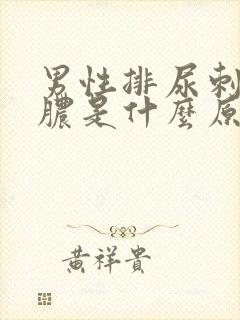 男性排尿刺
膿是什麼原
黃祥貴